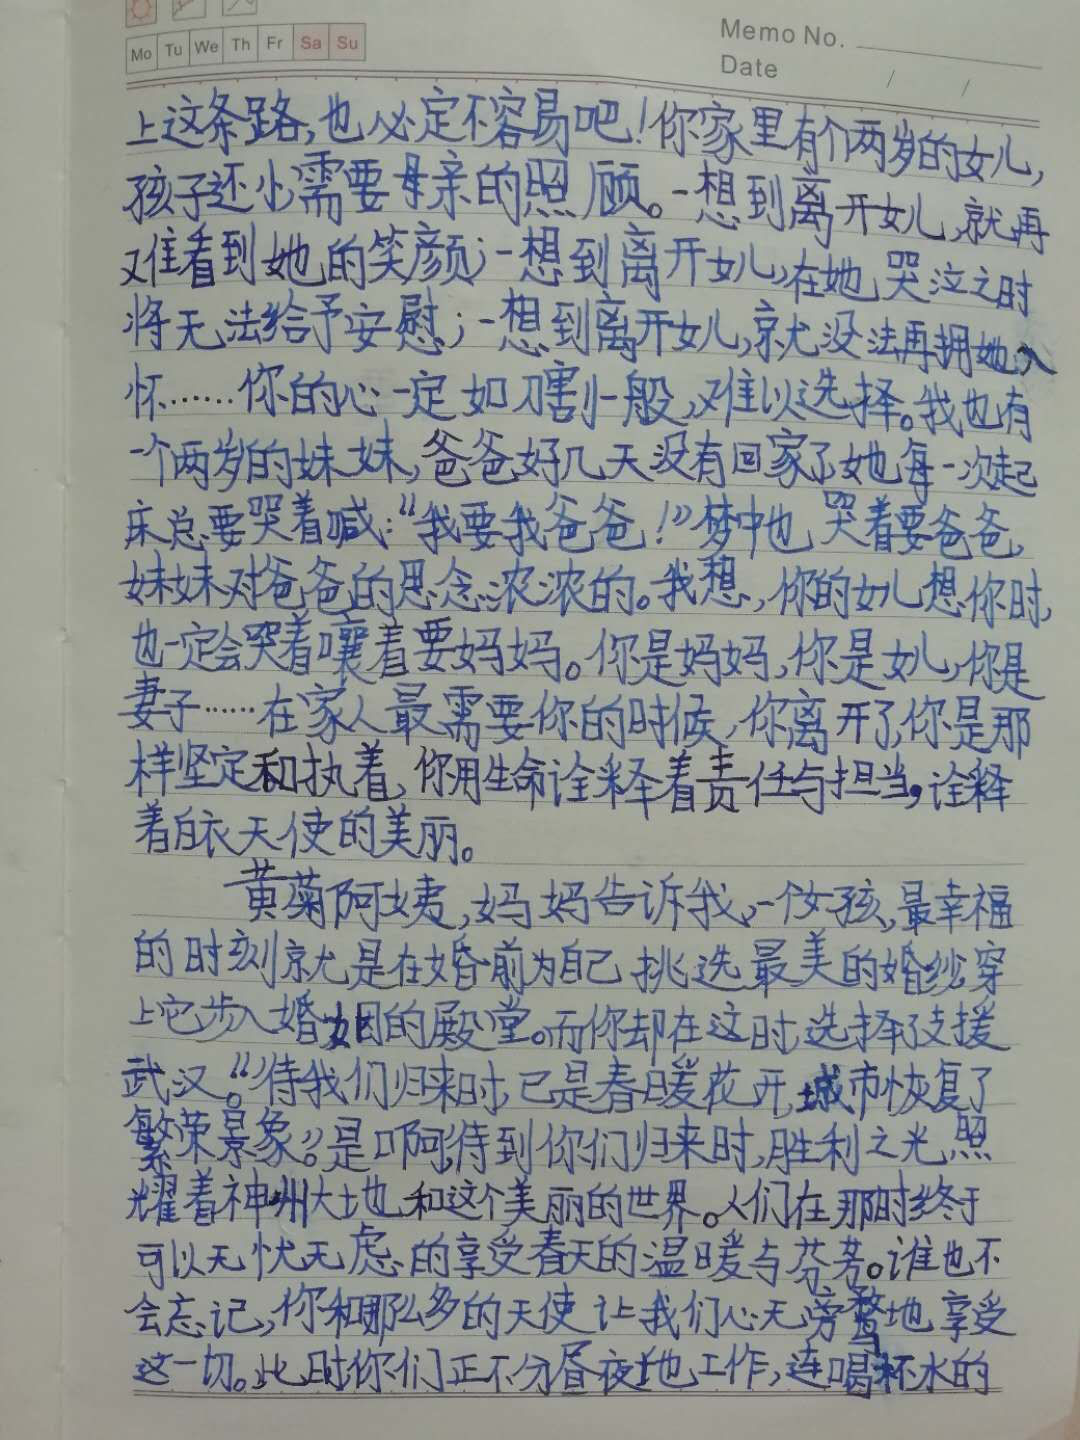 Mo Tu We Th Fr Sa Su
Memo No.
Date / /
上这条路,也必定不容易吧!你家里有个两岁的女儿,
孩子还小需要母亲的照顾。一想到离开女儿,就再
难看到她的笑颜;一想到离开女儿,在她哭泣之时
将无法给予安慰;一想到离开女儿,就没法再拥她入
怀……你的心一定如刀割一般,难以选择。我也有
一个两岁的妹妹,爸爸好几天没有回家了她每一次起
床总要哭着喊:“我要我爸爸!”梦中也哭着要爸爸,
妹妹对爸爸的思念浓浓的。我想,你的女儿想你时,
也一定会哭着嚷着要妈妈。你是妈妈,你是女儿,你是
妻子……在家人最需要你的时候,你离开了,你是那
样坚定和执着,你用生命诠释着责任与担当,诠释
着白衣天使的美丽。
黄菊阿姨,妈妈告诉我,一个女孩,最幸福
的时刻就是在婚前为自己挑选最美的婚纱穿
上它步入婚姻的殿堂。而你却在这时选择了支援
武汉。“待我们归来时,已是春暖花开,城市恢复了
繁荣景象。”是啊,待到你们归来时,胜利之光照
耀着神州大地和这个美丽的世界。人们在那时终于
可以无忧无虑的享受春天的温暖与芬芳。谁也不
会忘记,你和那么多的天使让我们心无旁骛地享受
这一切。此时你们正不分昼夜地工作,连喝杯水的